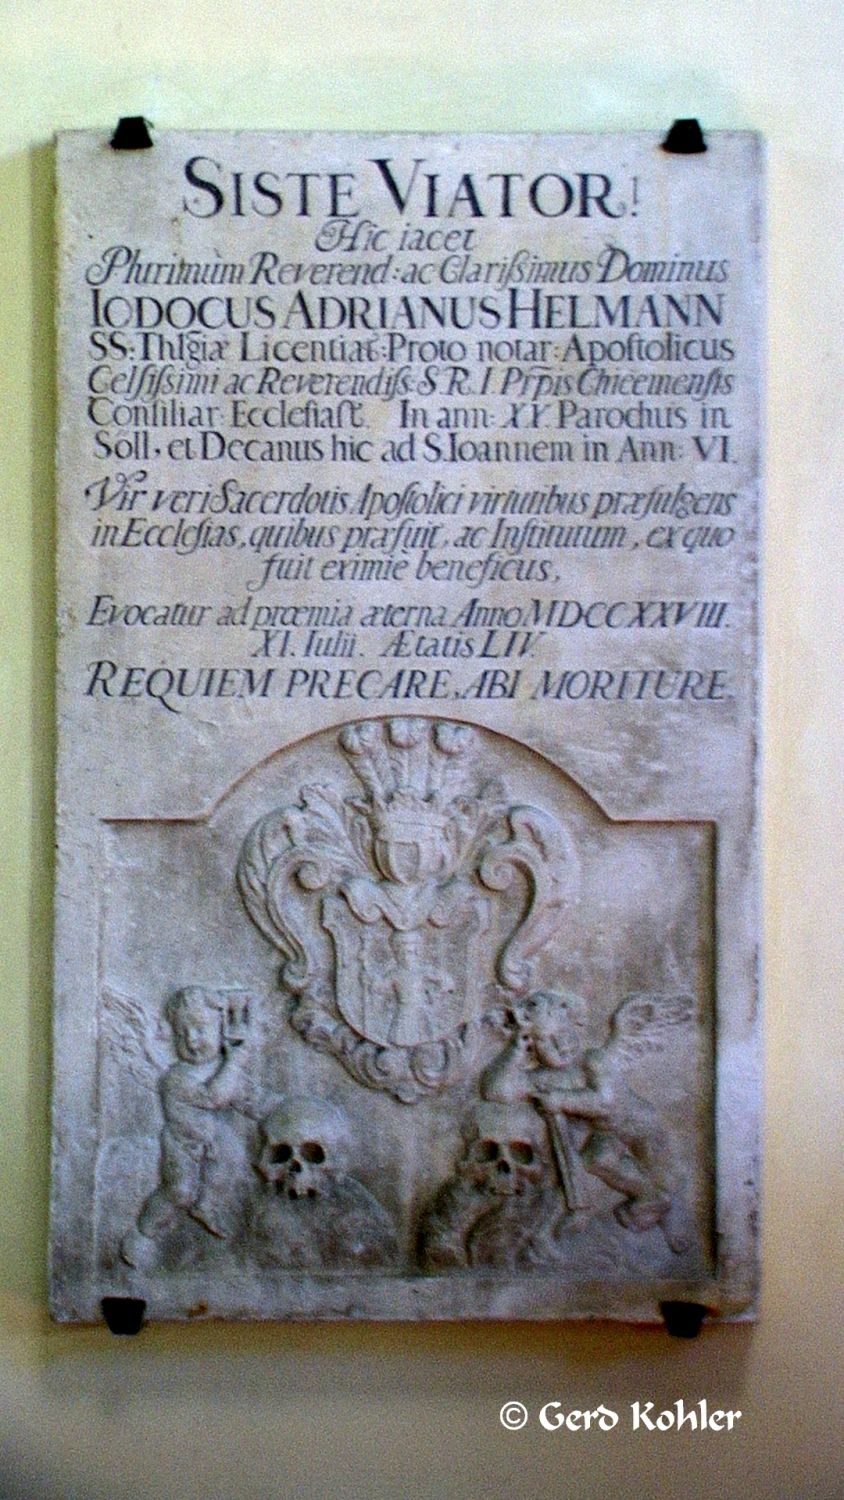 SISTE VIATOR!
Hic iacet
Plurimùm Reverend: ac Clarißimus Dominus
IODOCUS ADRIANUS HELMANN
SS: Thlgiæ Licentiat: Proto notar: Apoſtolicus
Celſiſsimi ac Reverendiſs: S. R. I. Prpis Chiemenſis
Conſiliar: Eccleſiaſt. In ann: XV. Parochus in
Söll, et Decanus hic ad S. Ioannem in Ann: VI.
Vir veri Sacerdotis Apoſtolici virtutibus præfulgens
in Eccleſias, quibus præfuit, ac Inſtitutum, ex quo
fuit eximiè beneficus,
Evocatur ad præmia æterna Anno MDCCXXVIII.
XI. Iulii. Ætatis LIV.
REQUIEM PRECARE, ABI MORITURE.
© Gerd Kohler